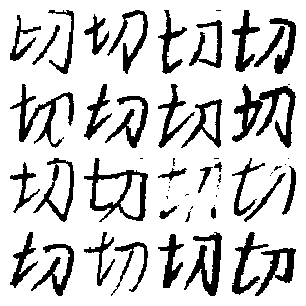 切切切切
切切切切
切切切切
切切切切